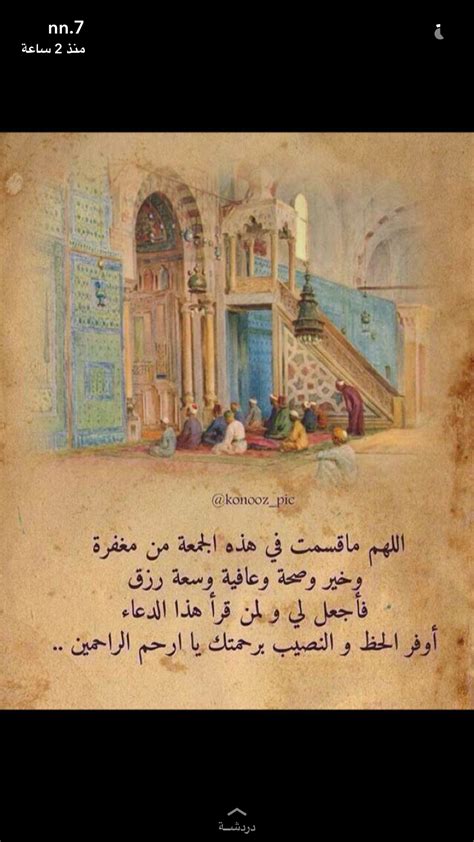 nn.7
منذ 2 ساعة
@konooz_pic
اللهم ماقسمت في هذه الجمعة من مغفرة
وخير وصحة وعافية وسعة رزق
فأجعل لي و لمن قرأ هذا الدعاء
أوفر الحظ و النصيب برحمتك يا ارحم الراحمين ..
دردشة